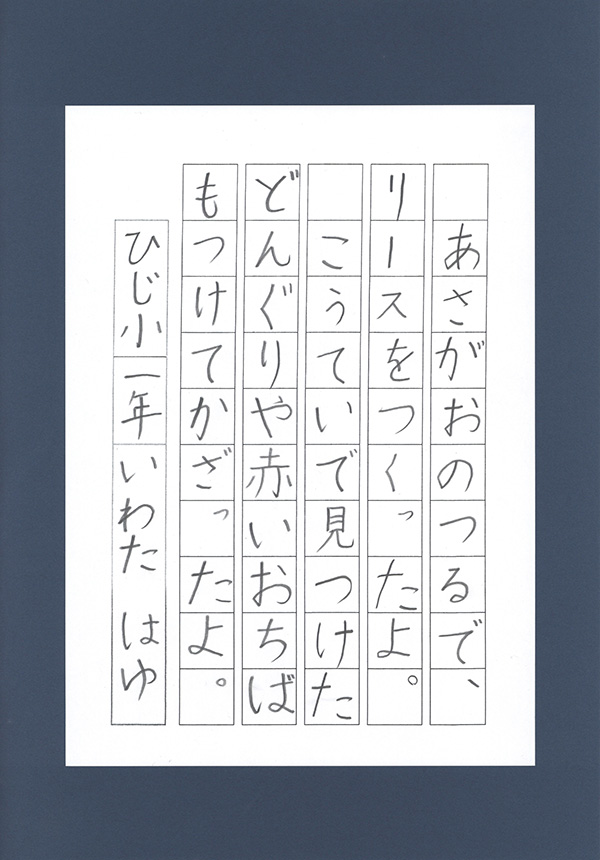 あさがおのつるで、
リースをつくったよ。
こうていで見つけた
どんぐりや赤いおちば
もつけてかざったよ。
ひじ小 一年 いわた はゆ